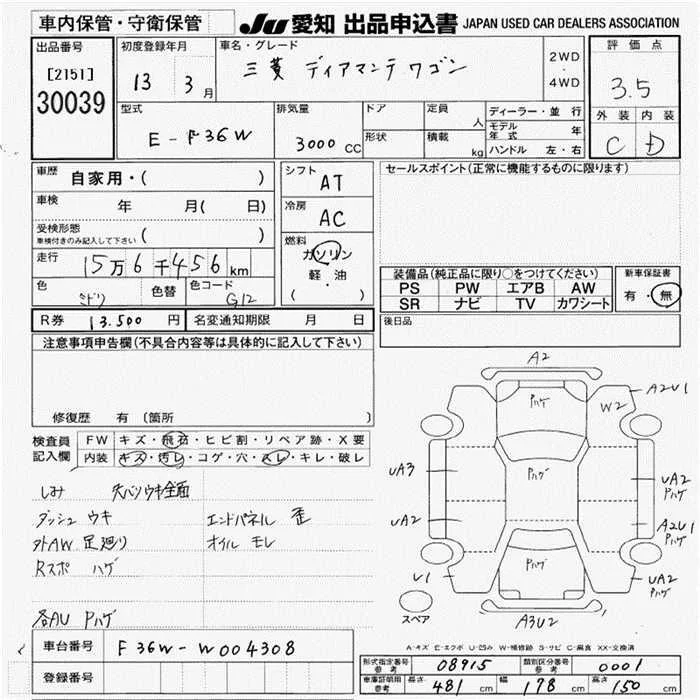 車内保管・守衛保管
JU 愛知 出品申込書 JAPAN USED CAR DEALERS ASSOCIATION
出品番号
[2151]
30039
初度登録年月
13 3月
車名・グレード
三菱 ディアマンテ ワゴン
2WD
・
4WD
評価点
3.5
外装 内装
C D
型式
E-F36W
排気量
3000 CC
ドア
定員
人
形状
積載
kg
ディーラー・並 行
モデル年式 年
ハンドル 左・右
車歴 自家用・( )
車検 年 月( 日)
受検形態
車検付きのみ記入して下さい ( )
走行 15万6千456 km
色 ミドリ 色替 色コード G12
シフト
AT
冷房
AC
燃料
ガソリン
軽・油
( )
セールスポイント(正常に機能するものに限ります)
装備品(純正品に限り○をつけてください)
PS PW エアB AW
SR ナビ TV カワシート
新車保証書
有・無
R券 13.500 円 名変通知期限 月 日
後日品
注意事項申告欄(不具合内容等は具体的に記入して下さい)
修復歴 有 (箇所
検査員
記入欄
FW キズ・飛石・ヒビ割・リペア跡・X要
内装 キズ・汚レ・コゲ・穴・スレ・キレ・破レ
しみ 天バリウキ全面
ダッシュ ウキ エンドパネル 歪
外AW 足廻り オイル モレ
Rスポ ハゲ
各AU Pハゲ
A2
Pハゲ
W2
A2U1
UA3
Pハゲ
UA2
Pハゲ
UA2
A2U1
Pハゲ
U1
Pハゲ
UA2
Pハゲ
スペア
A3U2
A-キズ E-エクボ U-凹み W-補修跡 S-サビ C-腐食 XX-交換済
車台番号 F36W-W004308
登録番号
形式指定番号
参考
08915
類別区分番号
参考
0001
車庫証明用
参考
長さ 481 cm 幅 178 cm 高さ 150 cm